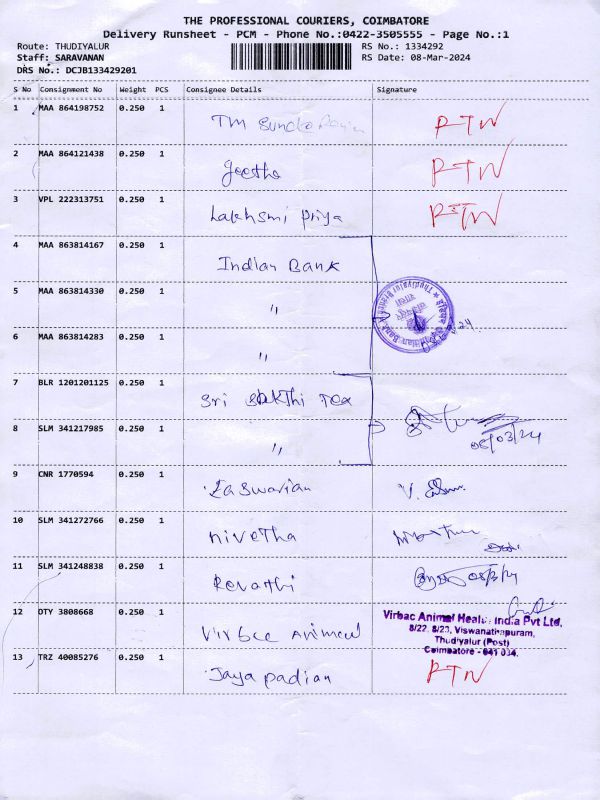 THE PROFESSIONAL COURIERS, COIMBATORE
Delivery Runsheet - PCM - Phone No.:0422-3505555 - Page No.:1
Route: THUDIYALUR
RS No.: 1334292
Staff: SARAVANAN
RS Date: 08-Mar-2024
DRS No.: DCJB133429201
S No Consignment No Weight PCS Consignee Details Signature
1 MAA 864198752 0.250 1 TM RTN
2 MAA 864121438 0.250 1 geetha RTN
3 VPL 222313751 0.250 1 Lakhsmi priya RTN
4 MAA 863814167 0.250 1 Indian Bank
5 MAA 863814330 0.250 1 "
6 MAA 863814283 0.250 1 "
7 BLR 1201201125 0.250 1 Sri Sakthi Tex
8 SLM 341217985 0.250 1 " 08/03/24
9 CNR 1770594 0.250 1 Easwarian V.
10 SLM 341272766 0.250 1 nivetha
11 SLM 341248838 0.250 1 Revathi 08/3/24
12 OTY 3808668 0.250 1 Virbec Animew
Virbac Animal Health India Pvt Ltd,
8/22, 8/23, Viswanathapuram,
Thudiyalur (Post)
Coimbatore - 641 034.
13 TRZ 40085276 0.250 1 Jaya padian RTN